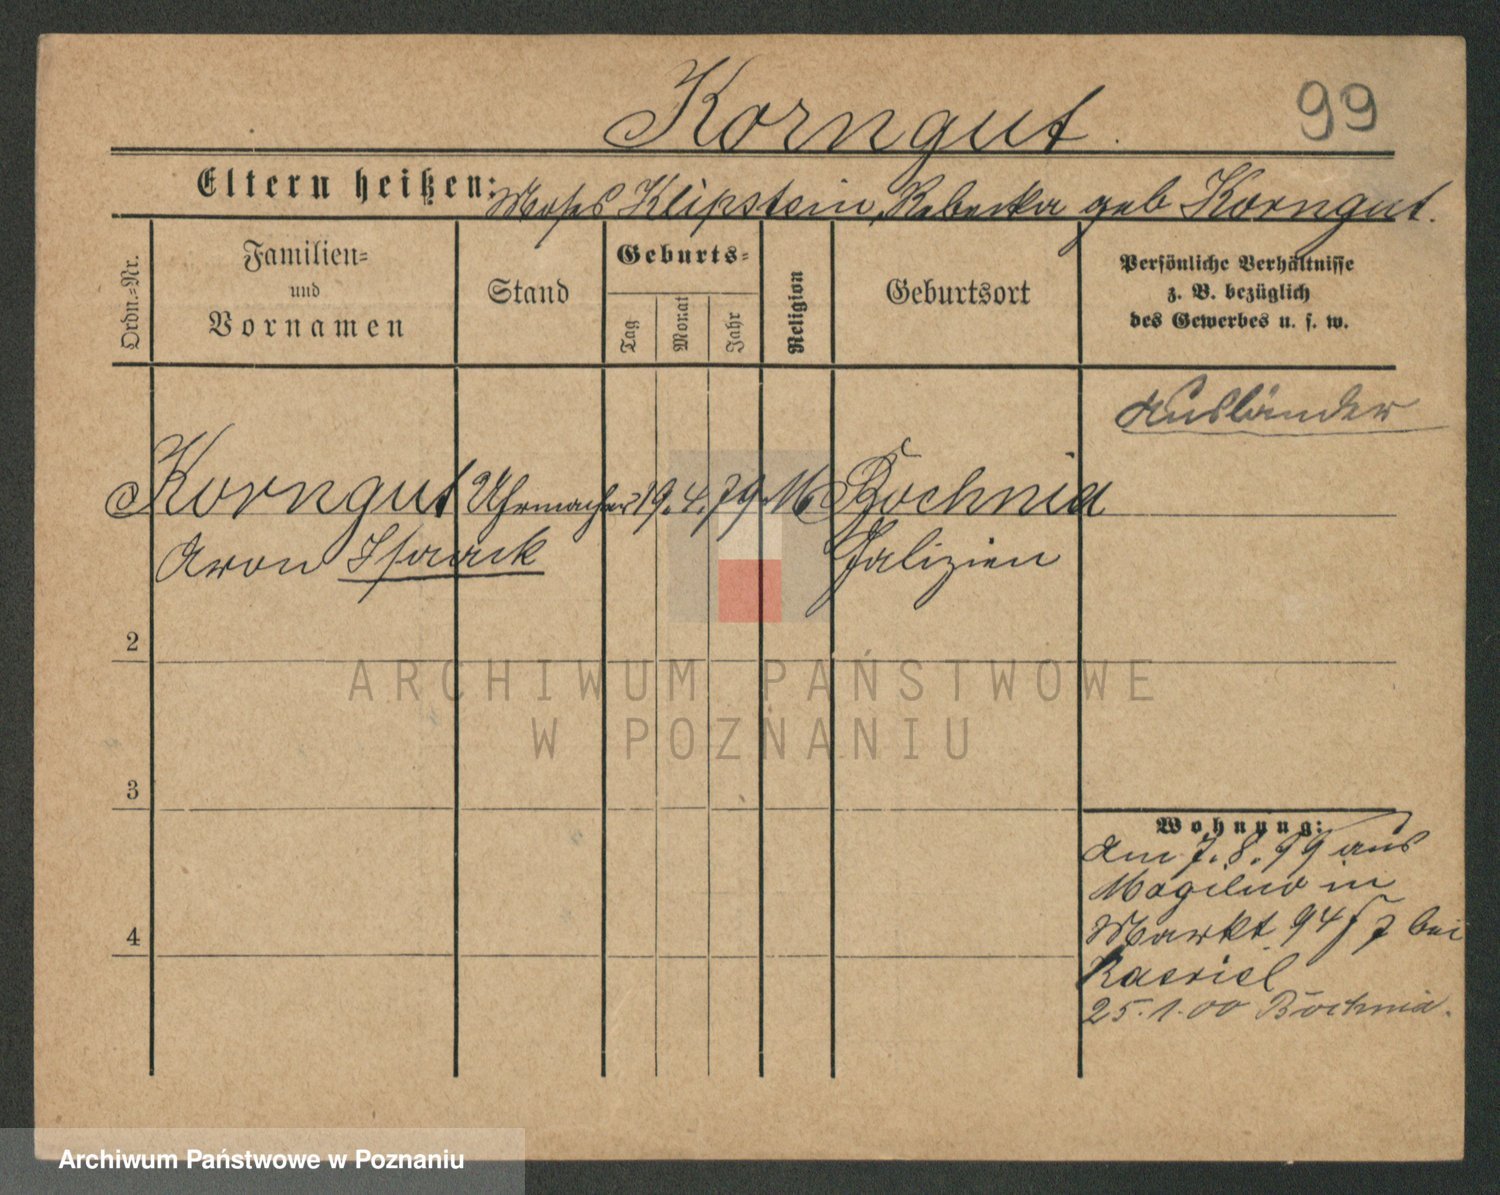 Korngut.
99
Eltern heißen: Moses Klipstein, Rebecka geb Korngut.
Ordn.-Nr.
Familien- und Vornamen
Stand
Geburts-
Tag
Monat
Jahr
Religion
Geburtsort
Persönliche Verhältnisse
z. B. bezüglich
des Gewerbes u. s. w.
Ausländer
Korngut Uhrmacher 19. 4. 79 M Bochnia
Aron Isaack Galizien
2
3
4
Wohnung:
Am 7. 8. 99 aus
Mogilno in
Markt 94/ 7 bei
25. 1. 00 Bochnia.
ARCHIWUM PAŃSTWOWE
W POZNANIU
Archiwum Państwowe w Poznaniu